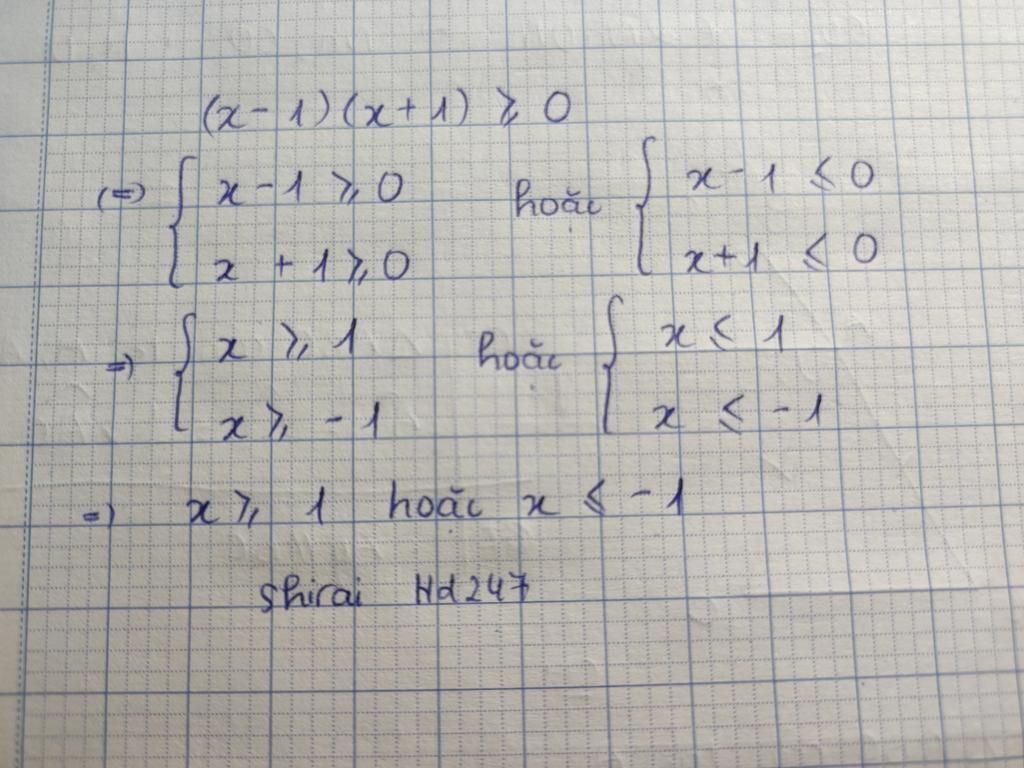 (x-1)(x+1) ⩾ 0
(=) { x-1 ⩾ 0 hoặc { x-1 ⩽ 0
x +1 ⩾ 0 x+1 ⩽ 0
=) { x ⩾ 1 hoặc { x ⩽ 1
x ⩾ -1 x ⩽ -1
=) x ⩾ 1 hoăc x ⩽ -1
Shirai Hd247